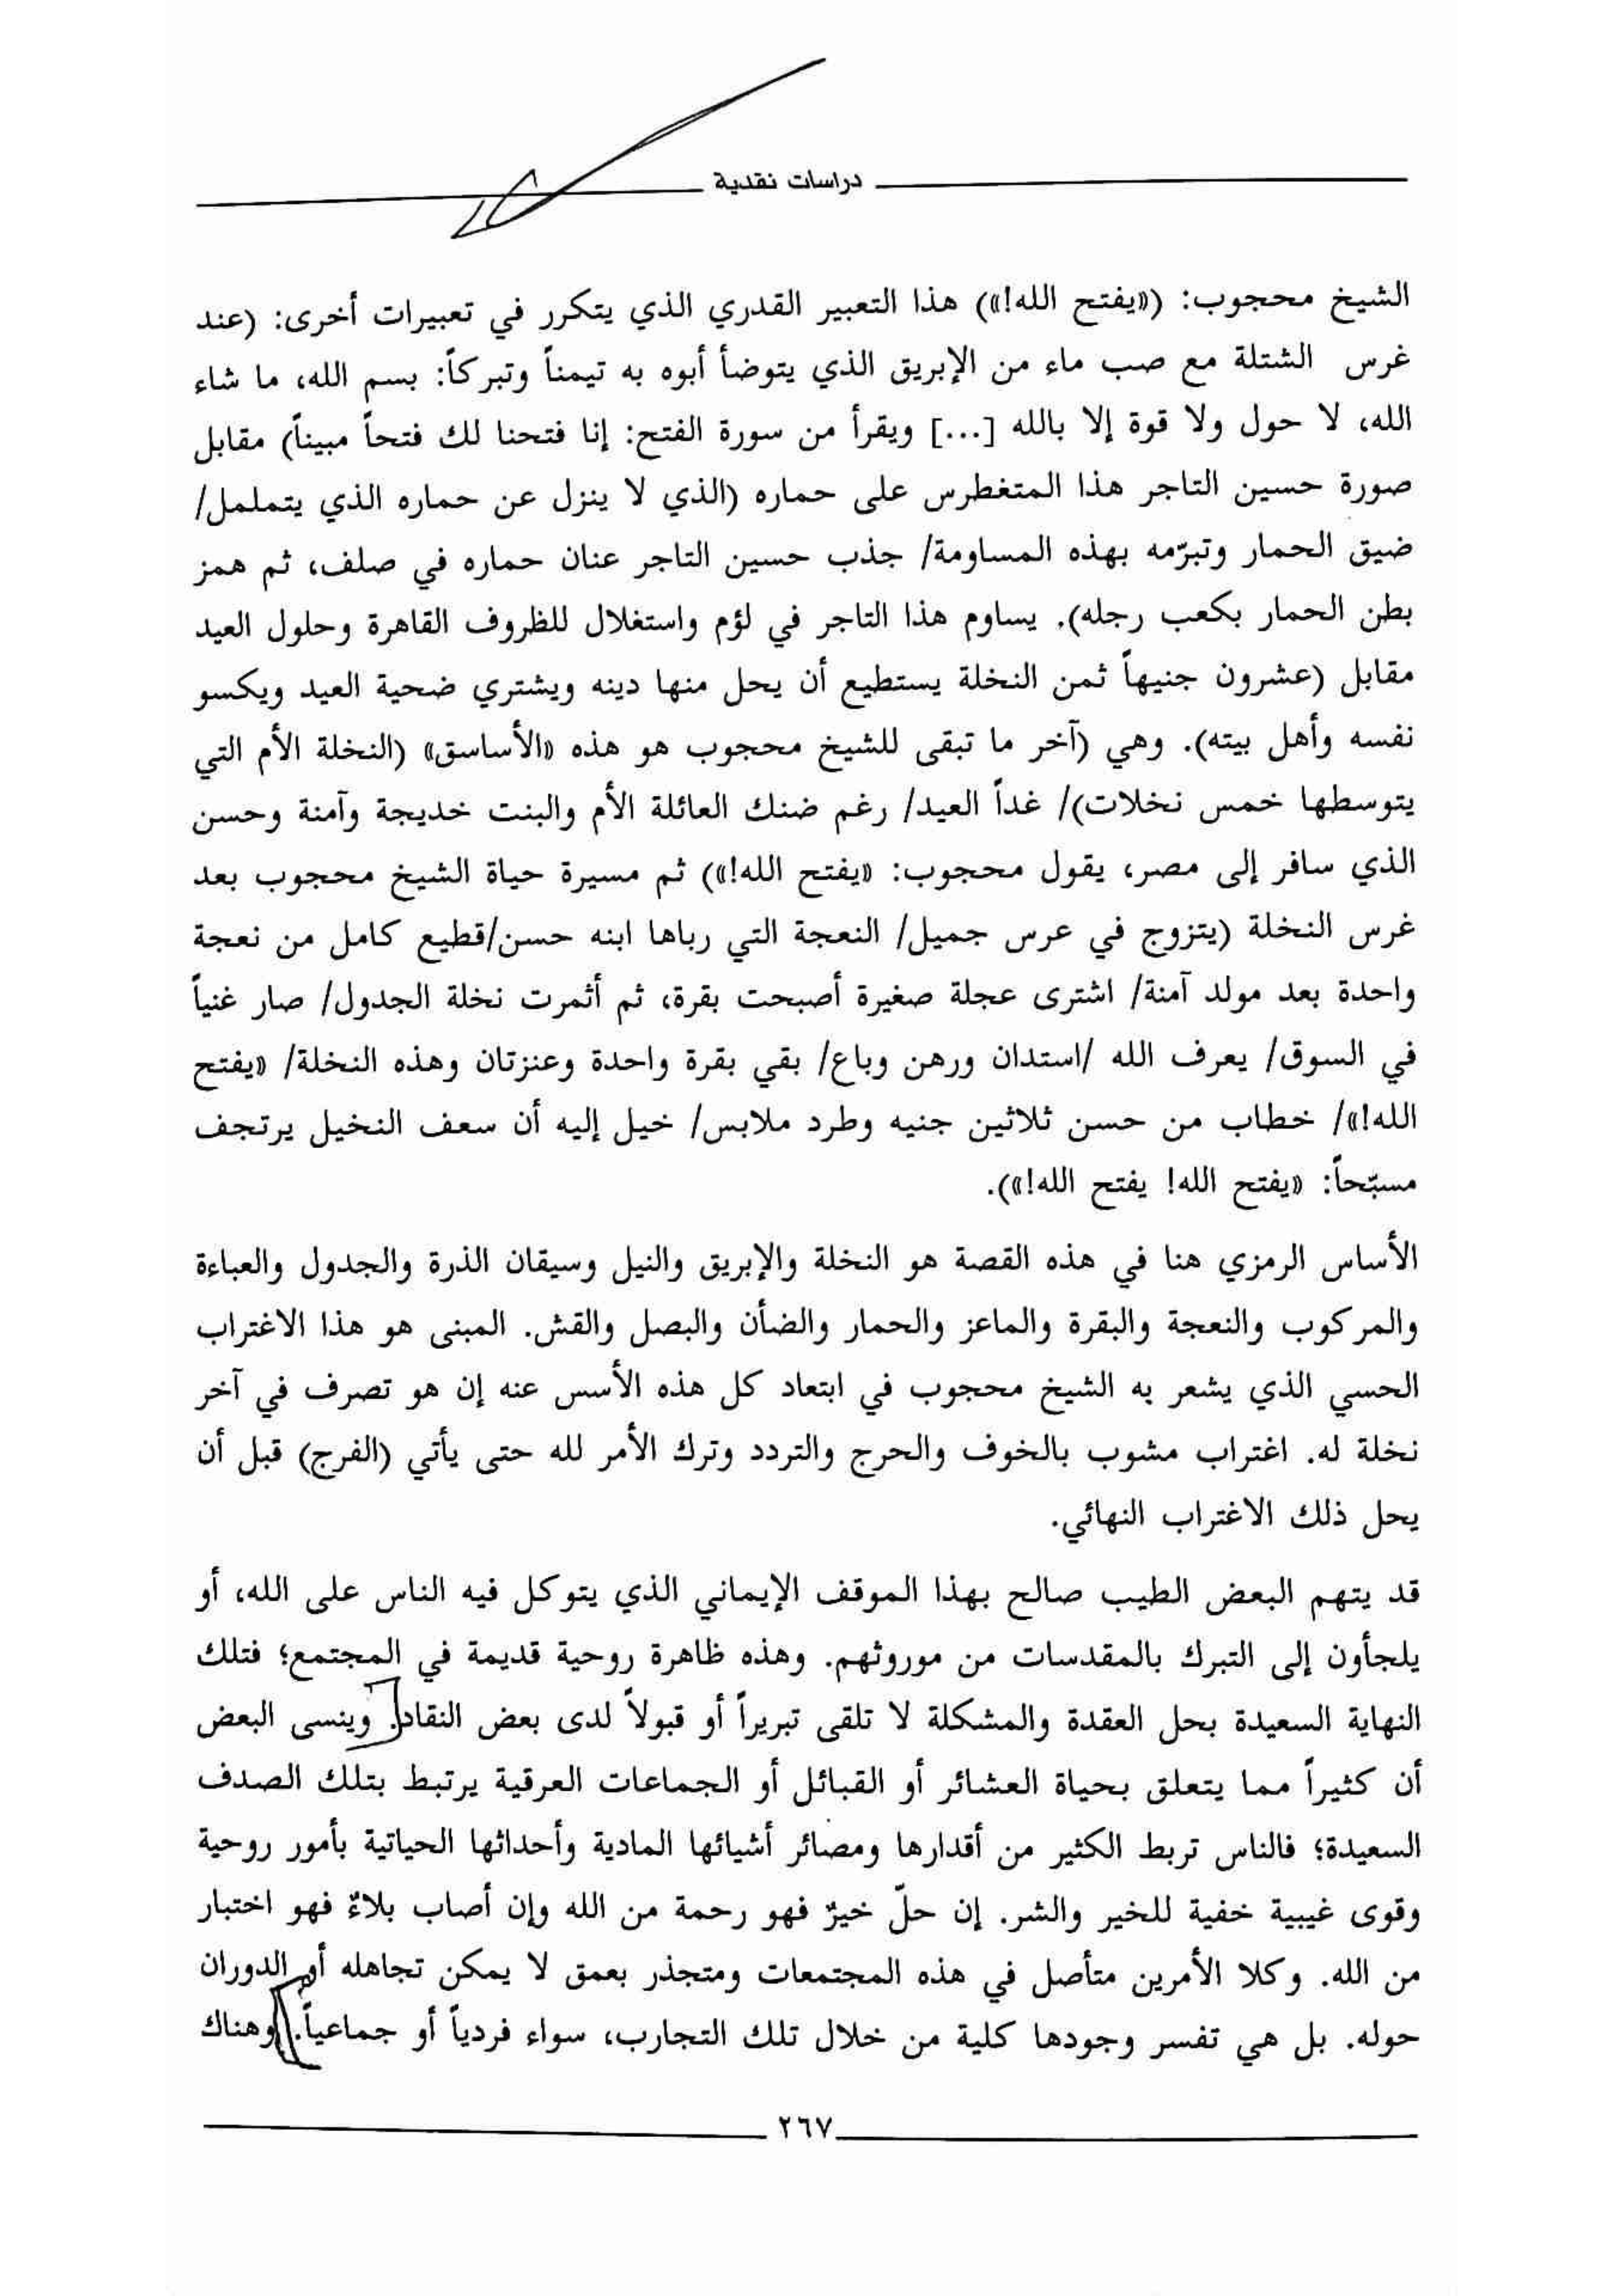 دراسات نقدية
الشيخ محجوب: («يفتح الله!») هذا التعبير القدري الذي يتكرر في تعبيرات أخرى: (عند
غرس الشتلة مع صب ماء من الإبريق الذي يتوضأ أبوه به تيمناً وتبركاً: بسم الله، ما شاء
الله، لا حول ولا قوة إلا بالله [...] ويقرأ من سورة الفتح: إنا فتحنا لك فتحاً مبيناً) مقابل
صورة حسين التاجر هذا المتغطرس على حماره (الذي لا ينزل عن حماره الذي يتململ/
ضيق الحمار وتبرّمه بهذه المساومة/ جذب حسين التاجر عنان حماره في صلف، ثم همز
بطن الحمار بكعب رجله). يساوم هذا التاجر في لؤم واستغلال للظروف القاهرة وحلول العيد
مقابل (عشرون جنيهاً ثمن النخلة يستطيع أن يحل منها دينه ويشتري ضحية العيد ويكسو
نفسه وأهل بيته). وهي (آخر ما تبقى للشيخ محجوب هو هذه «الأساسق» (النخلة الأم التي
يتوسطها خمس نخلات)/ غداً العيد/ رغم ضنك العائلة الأم والبنت خديجة وآمنة وحسن
الذي سافر إلى مصر، يقول محجوب: «يفتح الله!») ثم مسيرة حياة الشيخ محجوب بعد
غرس النخلة (يتزوج في عرس جميل/ النعجة التي رباها ابنه حسن/قطيع كامل من نعجة
واحدة بعد مولد آمنة/ اشترى عجلة صغيرة أصبحت بقرة، ثم أثمرت نخلة الجدول/ صار غنياً
في السوق/ يعرف الله /استدان ورهن وباع/ بقي بقرة واحدة وعنزتان وهذه النخلة/ «يفتح
الله!»/ خطاب من حسن ثلاثين جنيه وطرد ملابس/ خيل إليه أن سعف النخيل يرتجف
مسبّحاً: «يفتح الله! يفتح الله!»).
الأساس الرمزي هنا في هذه القصة هو النخلة والإبريق والنيل وسيقان الذرة والجدول والعباءة
والمركوب والنعجة والبقرة والماعز والحمار والضأن والبصل والقش. المبنى هو هذا الاغتراب
الحسي الذي يشعر به الشيخ محجوب في ابتعاد كل هذه الأسس عنه إن هو تصرف في آخر
نخلة له. اغتراب مشوب بالخوف والحرج والتردد وترك الأمر لله حتى يأتي (الفرج) قبل أن
يحل ذلك الاغتراب النهائي.
قد يتهم البعض الطيب صالح بهذا الموقف الإيماني الذي يتوكل فيه الناس على الله، أو
يلجأون إلى التبرك بالمقدسات من موروثهم. وهذه ظاهرة روحية قديمة في المجتمع؛ فتلك
النهاية السعيدة بحل العقدة والمشكلة لا تلقى تبريراً أو قبولاً لدى بعض النقاد. وينسى البعض
أن كثيراً مما يتعلق بحياة العشائر أو القبائل أو الجماعات العرقية يرتبط بتلك الصدف
السعيدة؛ فالناس تربط الكثير من أقدارها ومصائر أشيائها المادية وأحداثها الحياتية بأمور روحية
وقوى غيبية خفية للخير والشر. إن حلّ خيرٌ فهو رحمة من الله وإن أصاب بلاءٌ فهو اختبار
من الله. وكلا الأمرين متأصل في هذه المجتمعات ومتجذر بعمق لا يمكن تجاهله أو الدوران
حوله. بل هي تفسر وجودها كلية من خلال تلك التجارب، سواء فردياً أو جماعياً. وهناك
٢٦٧